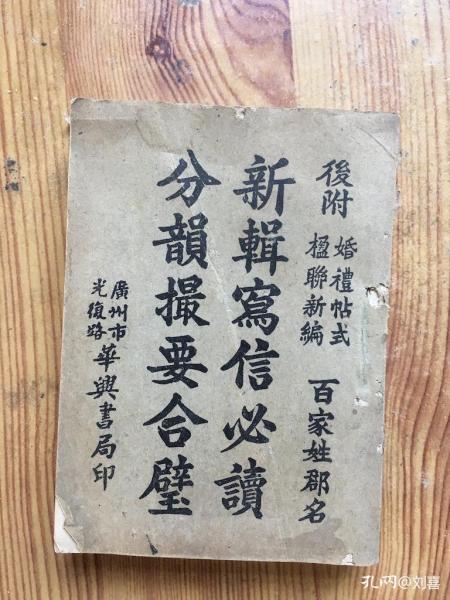 後附
婚禮帖式
楹聯新編
百家姓郡名
新輯寫信必讀
分韻撮要合璧
廣州市
光復路
華興書局印
孔网@刘喜